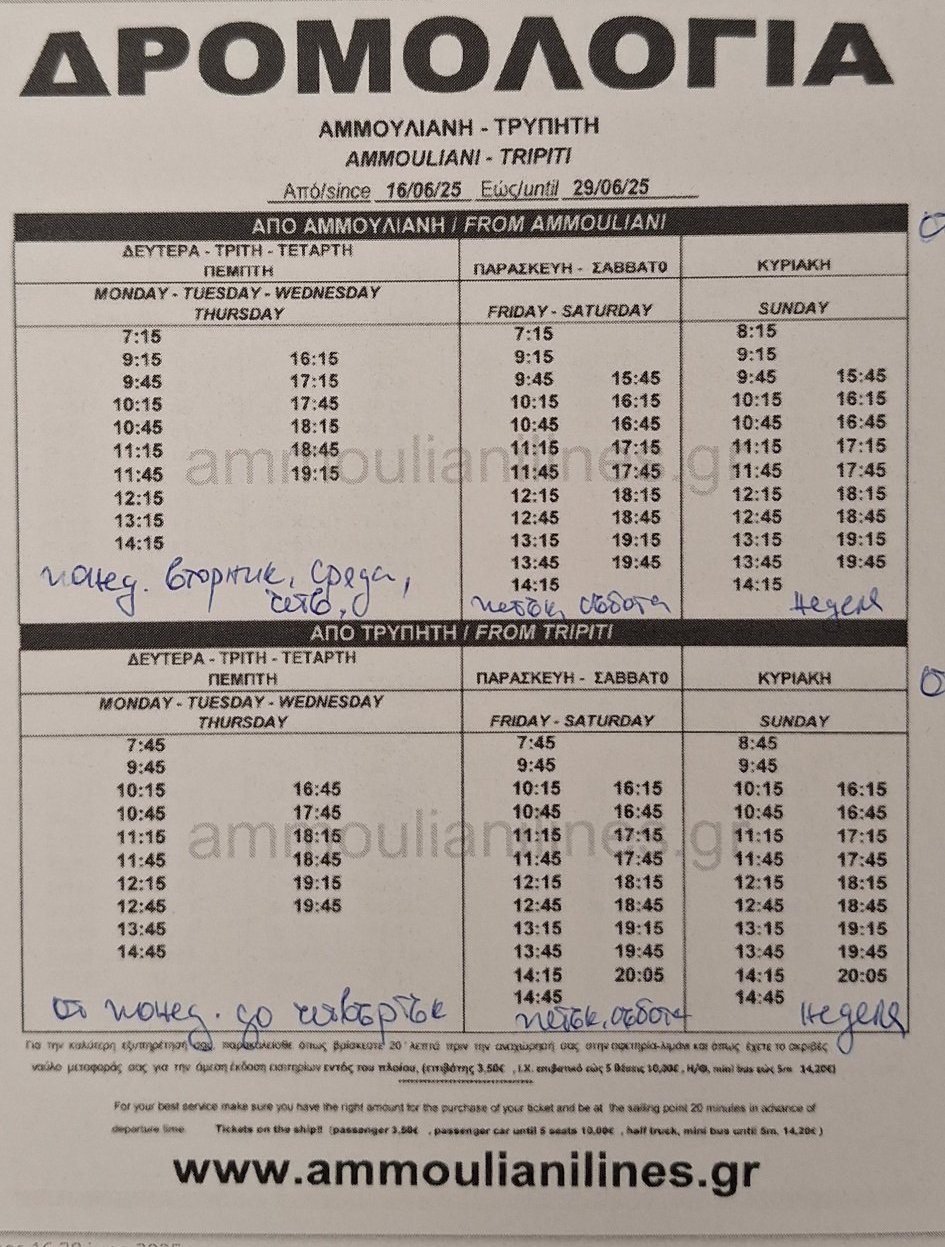 ΔΡΟΜΟΛΟΓΙΑ
ΑΜΜΟΥΛΙΑΝΗ - ΤΡΥΠΗΤΗ
AMMOULIANI - TRIPITI
Από/since 16/06/25 Εώς/until 29/06/25
ΑΠΟ ΑΜΜΟΥΛΙΑΝΗ / FROM AMMOULIANI
ΔΕΥΤΕΡΑ - ΤΡΙΤΗ - ΤΕΤΑΡΤΗ
ΠΕΜΠΤΗ ΠΑΡΑΣΚΕΥΗ - ΣΑΒΒΑΤΟ ΚΥΡΙΑΚΗ
MONDAY - TUESDAY - WEDNESDAY
THURSDAY FRIDAY - SATURDAY SUNDAY
7:15 7:15 8:15
9:15 16:15 9:15 9:15
9:45 17:15 9:45 15:45 9:45 15:45
10:15 17:45 10:15 16:15 10:15 16:15
10:45 18:15 10:45 16:45 10:45 16:45
11:15 18:45 11:15 17:15 11:15 17:15
ammoulianilines.gr
11:45 19:15 11:45 17:45 11:45 17:45
12:15 12:15 18:15 12:15 18:15
13:15 12:45 18:45 12:45 18:45
14:15 13:15 19:15 13:15 19:15
13:45 19:45 13:45 19:45
14:15 14:15
понед. вторник, сряда,
четв, петък, събота неделя
ΑΠΟ ΤΡΥΠΗΤΗ / FROM TRIPITI
ΔΕΥΤΕΡΑ - ΤΡΙΤΗ - ΤΕΤΑΡΤΗ
ΠΕΜΠΤΗ ΠΑΡΑΣΚΕΥΗ - ΣΑΒΒΑΤΟ ΚΥΡΙΑΚΗ
MONDAY - TUESDAY - WEDNESDAY
THURSDAY FRIDAY - SATURDAY SUNDAY
7:45 7:45 8:45
9:45 9:45 9:45
10:15 16:45 10:15 16:15 10:15 16:15
10:45 17:45 10:45 16:45 10:45 16:45
11:15 18:15 11:15 17:15 11:15 17:15
ammoulianilines.gr
11:45 18:45 11:45 17:45 11:45 17:45
12:15 19:15 12:15 18:15 12:15 18:15
12:45 19:45 12:45 18:45 12:45 18:45
13:45 13:15 19:15 13:15 19:15
14:45 13:45 19:45 13:45 19:45
14:15 20:05 14:15 20:05
14:45 14:45
от понед. до четвертък петък, събота неделя
Για την καλύτερη εξυπηρέτηση σας, παρακαλείσθε όπως βρίσκεστε 20' λεπτά πριν την αναχώρηση σας στην αφετηρία-λιμάνι και όπως έχετε το ακριβές
ναύλο μεταφοράς σας για την άμεση έκδοση εισιτηρίων εντός του πλοίου, (επιβάτης 3,50€ , Ι.Χ. επιβατικό εώς 5 θέσεις 10,00€ , Η/Φ, mini bus εώς 5m 14,20€)
For your best service make sure you have the right amount for the purchase of your ticket and be at the sailing point 20 minutes in advance of
departure time. Tickets on the ship!! (passenger 3,50€ , passenger car until 5 seats 10,00€ , half truck, mini bus until 5m, 14,20€ )
www.ammoulianilines.gr